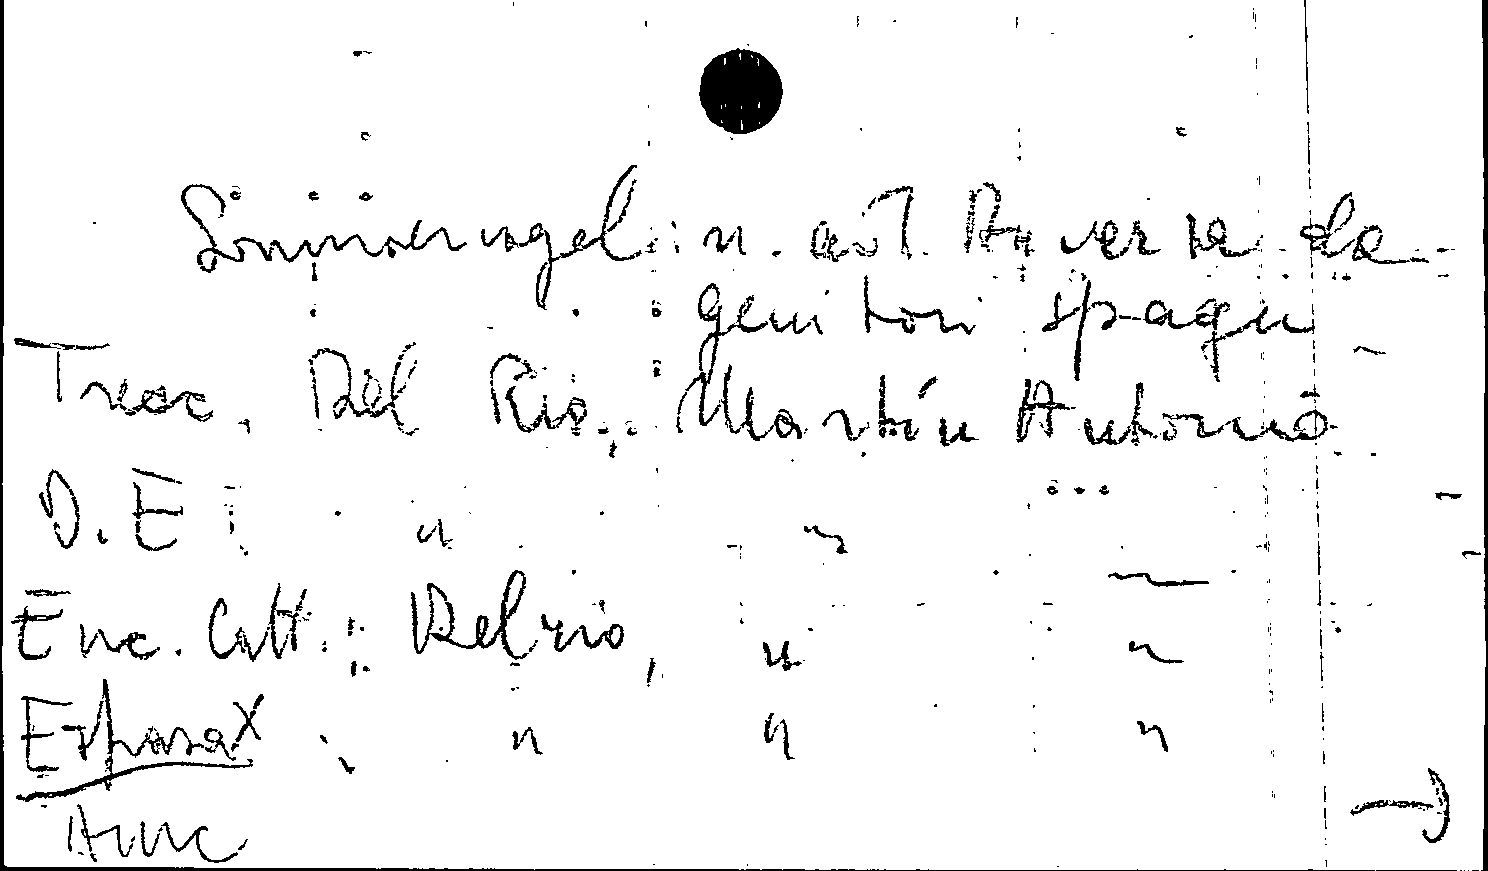 Sommervogel: n. ad Anversa da
genitori spagn
Trecc. Del Rio, Martín Antonio
D. E : " "
Enc. Catt. : Delrio, " "
Espasa X : " " "